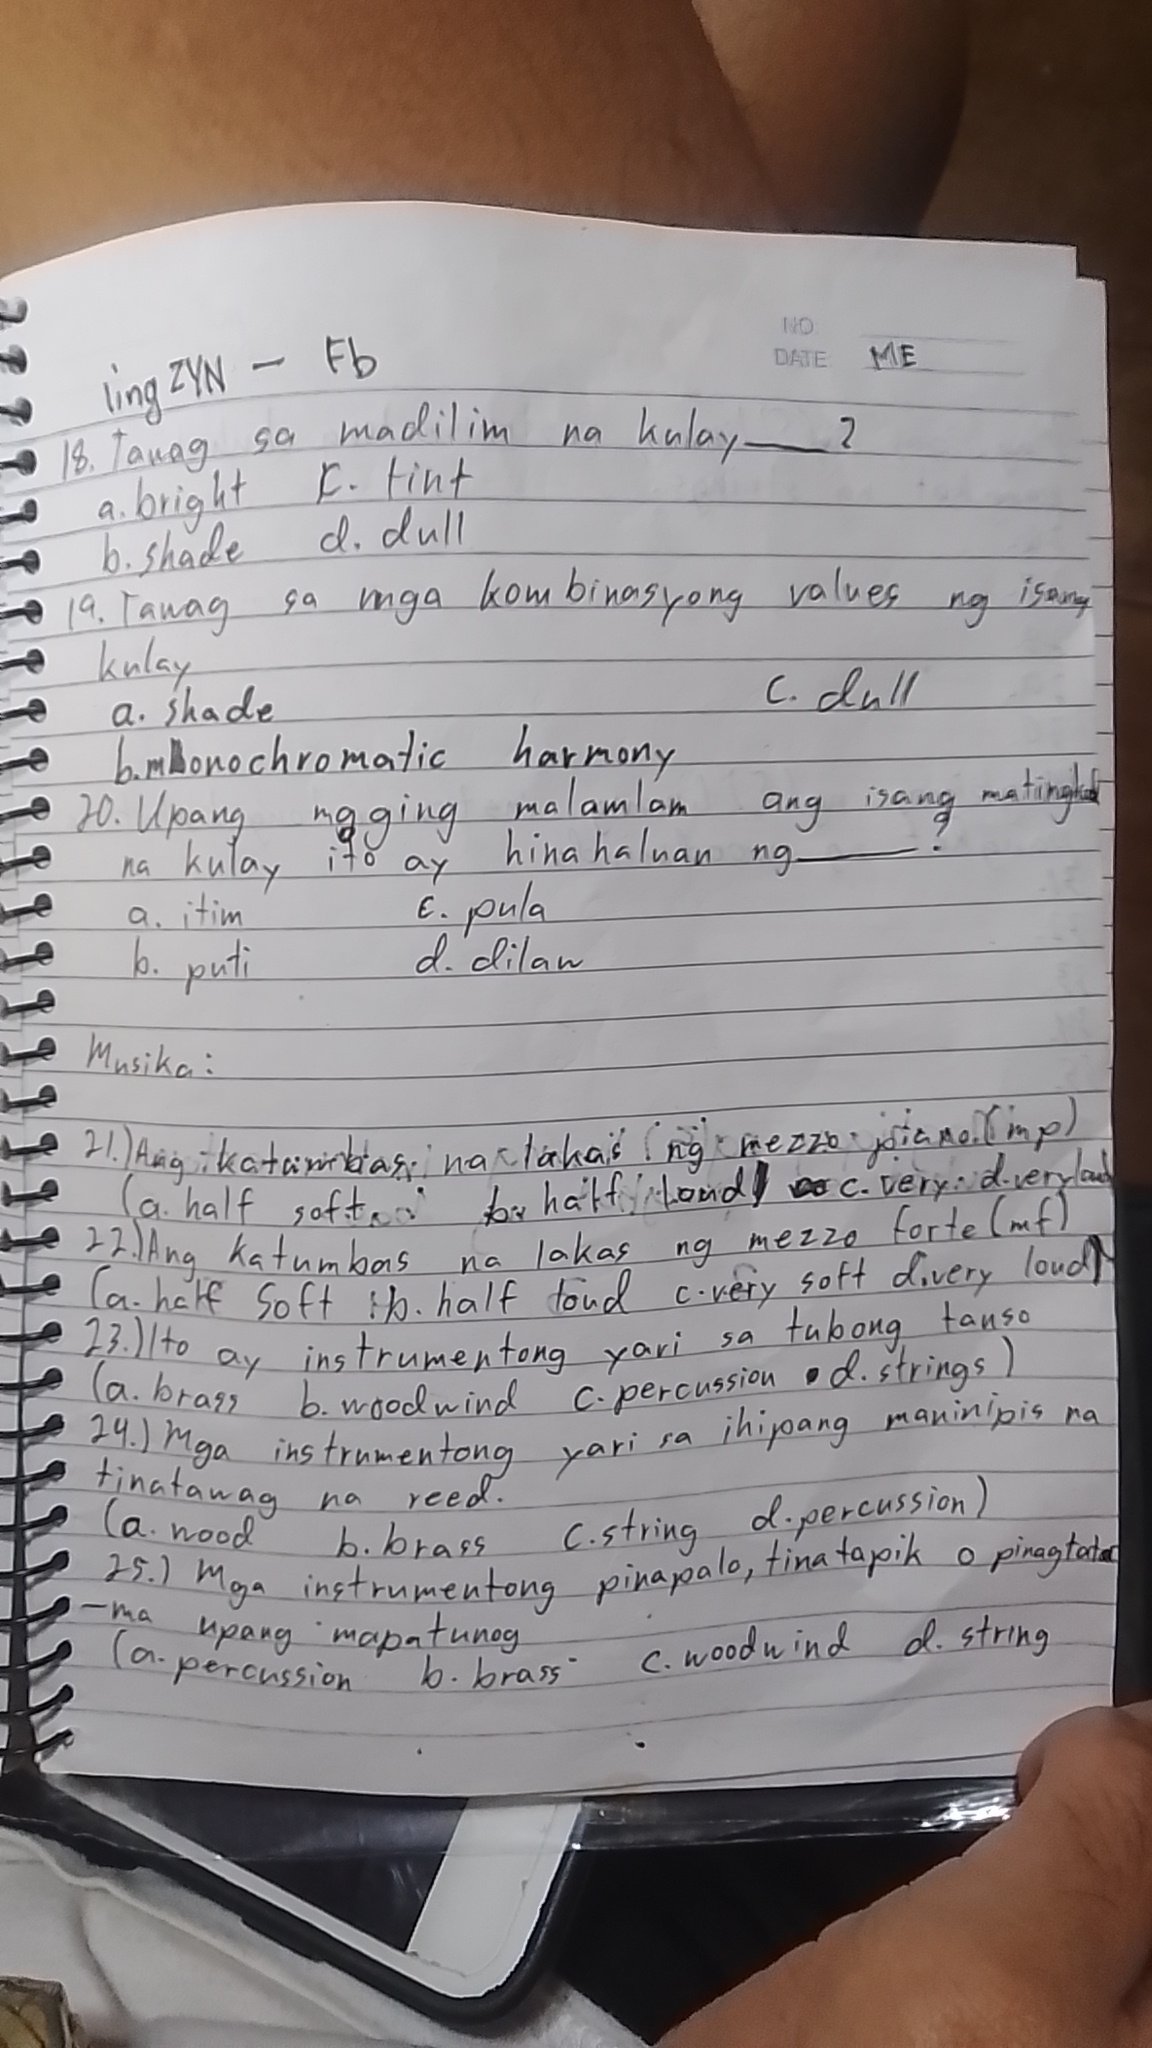 NO:
DATE ME
ling ZYN - Fb
18. Tawag sa madilim na kulay ___ ?
a. bright c. tint
b. shade d. dull
19. Tawag sa mga kombinasyong values ng isang
kulay
a. shade c. dull
b. monochromatic harmony
20. Upang maging malamlam ang isang matingkad
na kulay ito ay hinahaluan ng ___ ?
a. itim c. pula
b. puti d. dilaw
Musika:
21.) Ang katumbas na lakas ng mezzo piano. (mp)
(a. half soft b. half loud c. very d. very loud
22.) Ang katumbas na lakas ng mezzo forte (mf)
(a. half soft b. half loud c. very soft d. very loud)
23.) Ito ay instrumentong yari sa tubong tanso
(a. brass b. woodwind c. percussion d. strings)
24.) Mga instrumentong yari sa ihipang maninipis na
tinatawag na reed.
(a. wood b. brass c. string d. percussion)
25.) Mga instrumentong pinapalo, tinatapik o pinagtata
-ma upang mapatunog
(a. percussion b. brass c. woodwind d. string